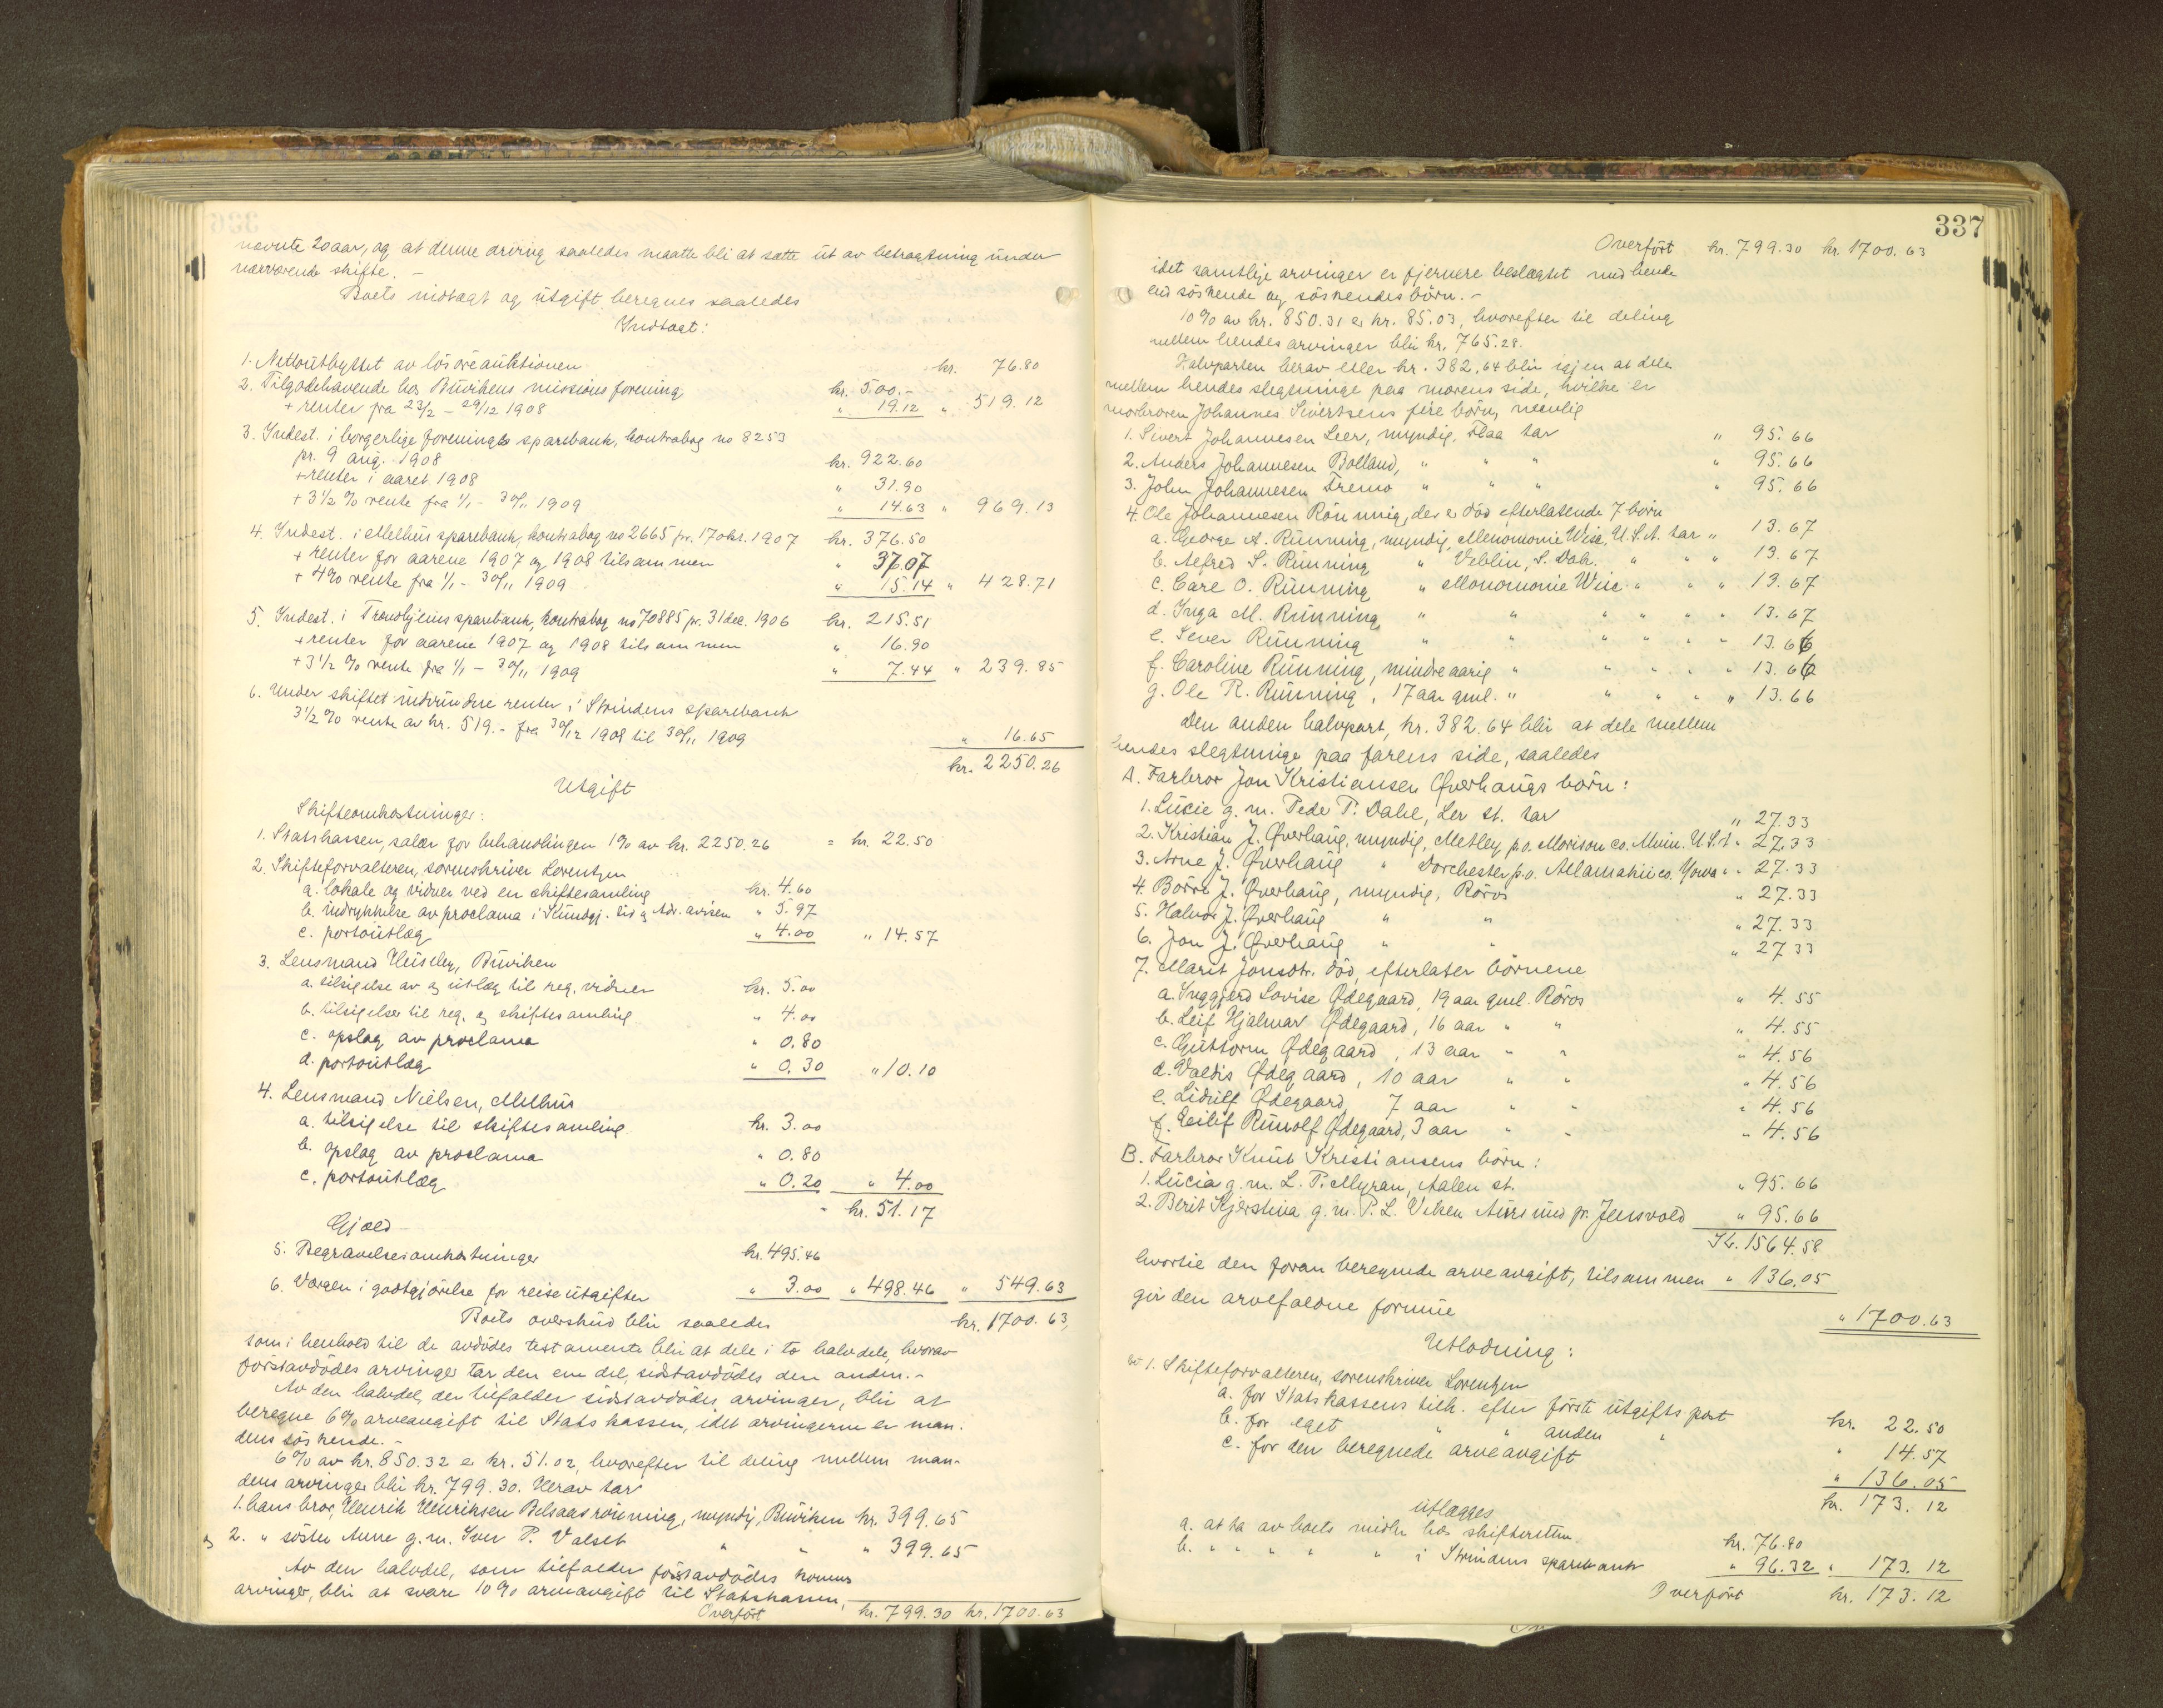 nævnte 20 aar, og at denne arving saaledes maatte bli at sætte ut av betragtning under
nærværende skifte. –
Boets indtægt og utgift beregnes saaledes
Indtægt:
1. Nettoutbyttet av lösöreauktionen kr. 76.80
2. Tilgodehavende hos Buvikens missionsforening kr. 500.–
+ renter fra 23/2 – 29/12 1908 " 19.12 " 519.12
3. Indest. i borgerlige forenings sparebank, kontrabog no 8253
pr. 9 aug. 1908 kr. 922.60
+ renter i aaret 1908 " 31.90
+ 3½ % rente fra 1/1 – 30/11 1909 " 14.63 " 969.13
4. Indest. i Melhus sparebank, kontrabog no 2665 pr. 17 okt. 1907 kr. 376.50
+ renter for aarene 1907 og 1908 tilsammen " 37.07
+ 4% rente fra 1/1 – 30/11 1909 " 15.14 " 428.71
5. Indest. i Trondhjems sparebank, kontrabog no 70885 pr. 31 dec. 1906 kr. 215.51
+ renter for aarene 1907 og 1908 tilsammen " 16.90
+ 3½ % rente fra 1/1 – 30/11 1909 " 7.44 " 239.85
6. Under skiftet indvundne renter i Strindens sparebank
3½ % rente av kr. 519.– fra 30/12 1908 til 30/11 1909 " 16.65
kr. 2250.26
Utgift
Skifteomkostninger:
1. Statskassen, salær for behandlingen 1% av kr. 2250.26 = kr. 22.50
2. Skifteforvalteren, sorenskriver Lorentzen
a. lokale og vidner ved en skiftesamling kr. 4.60
b. indrykkelse av proclama i Kundgj. tid. og Adr. avisen " 5.97
c. portoutlæg " 4.00 " 14.57
3. Lensmand Huseby, Buviken
a. tilsigelse av og utlæg til reg. vidner kr. 5.00
b. tilsigelser til reg. og skiftesamling " 4.00
c. opslag av proclama " 0.80
d. portoutlæg " 0.30 " 10.10
4. Lensmand Nielsen, Melhus
a. tilsigelse til skiftesamling kr. 3.00
b. opslag av proclama " 0.80
c. portoutlæg " 0.20 " 4.00
kr. 51.17
Gjæld
5. Begravelsesomkostninger kr. 495.46
6. Værgen i godtgjörelse for reiseutgifter " 3.00 " 498.46 " 549.63
Boets overskud blir saaledes kr. 1700.63,
som i henhold til de avdödes testamente blir at dele i to halvdele, hvorav
förstavdödes arvinger tar den ene del, sidstavdödes den anden. –
Av den halvdel, der tilfalder sidstavdödes arvinger, blir at
beregne 6% arveavgift til Statskassen, idet arvingerne er man-
dens söskende. –
6% av kr. 850.32 er kr. 51.02, hvorefter til deling mellem man-
dens arvinger blir kr. 799.30. Herav tar
1. hans bror, Henrik Henriksen Belsaasrönning, myndig, Buviken kr. 399.65
og 2. " söster Anne g. m. Iver P. Valset " " " 399.65
Av den halvdel, som tilfalder förstavdödes kones
arvinger, blir at svare 10% arveavgift til Statskassen,
Overfört kr. 799.30 kr. 1700.63
337
Overfört kr. 799.30 kr. 1700.63
idet samtlige arvinger er fjernere beslægtet med hende
end söskende og söskendes börn. –
10% av kr. 850.31 er kr. 85.03, hvorefter til deling
mellem hendes arvinger blir kr. 765.28.
Halvparten herav eller kr. 382.64 blir igjen at dele
mellem hendes slegtninge paa morens side, hvilke er
morbroren Johannes Sivertsens fire börn, nemlig
1. Sivert Johannesen Leer, myndig, Flaa tar " 95.66
2. Anders Johannesen Bolland, " " " " 95.66
3. John Johannesen Tremo " " " " 95.66
4. Ole Johannesen Rönning, der er död efterlatende 7 börn
a. George A. Running, myndig, Menomonie Wisc. U.S.A. tar " 13.67
b. Alfred S. Running " Veblin, S. Dak. " " " 13.67
c. Carl O. Running " Monomonie Wisc. " " " 13.67
d. Inga M. Running " " " " " " 13.67
e. Sever Running " " " " " " 13.66
f. Caroline Running, mindreaarig " " " " " 13.66
g. Ole R. Running, 17 aar gml. " " " " " 13.66
Den anden halvpart, kr. 382.64 blir at dele mellem
hendes slegtninge paa farens side, saaledes
A. Farbror Jon Kristiansen Överhaugs börn:
1. Lucie g. m. Peder P. Dahl, Ler st. tar " 27.33
2. Kristian J. Øverhaug, myndig, Metley p.o. Morison co. Minn. U.S.A. " 27.33
3. Arne J. Øverhaug " Dorchester p.o. Allamakii co. Yowa " " 27.33
4. Börre J. Øverhaug, myndig, Röros " 27.33
5. Halvor J. Øverhaug " " " 27.33
6. Jon J. Øverhaug " " " 27.33
7. Marit Jonsdtr. död, efterlater börnene
a. Inggjerd Lovise Ødegaard, 19 aar gml. Röros " 4.55
b. Leif Hjalmar Ødegaard, 16 aar " " " 4.55
c. Guttorm Ødegaard, 13 aar " " " 4.56
d. Valdis Ødegaard, 10 aar " " " 4.56
e. Lidulf Ødegaard, 7 aar " " " 4.56
f. Eilif Runolf Ødegaard, 3 aar " " " 4.56
B. Farbror Knut Kristiansens börn:
1. Lucia g. m. L. P. Myran, Aalen st. " 95.66
2. Berit Kjerstina g. m. P. L. Viken Aursund pr. Jensvold " 95.66
Kr. 1564.58
hvortil den foran beregnede arveavgift, tilsammen " 136.05
gir den arvefaldne formue " 1700.63
Utlodning:
1. Skifteforvalteren, sorenskriver Lorentzen
a. for Statskassens tilh. efter förste utgiftspost kr. 22.50
b. for eget " " anden " " 14.57
c. for den beregnede arveavgift " 136.05
kr. 173.12
utlægges
a. at ta av boets midler hos skifteretten kr. 76.80
b. " " " " " i Strindens sparebank " 96.32 " 173.12
Overfört kr. 173.12